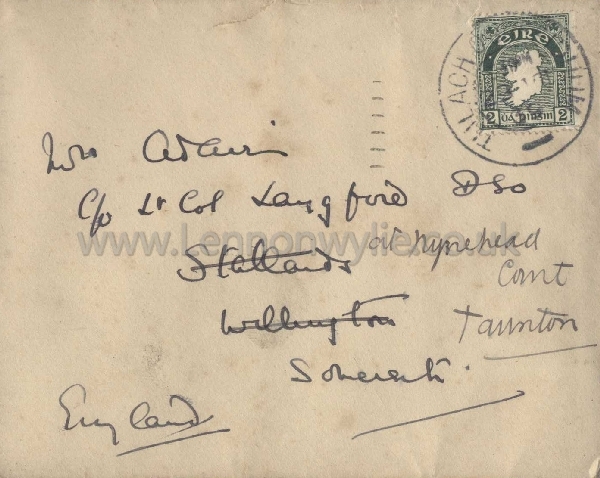 EIRE
2 dá pinsin 2
TULACH
Mrs Adair
c/o Lt Col Langford DSO
www.Lennonwylie.co.uk
at Nynehead
Stallards
Court
Wellington
Taunton
Somerset.
England